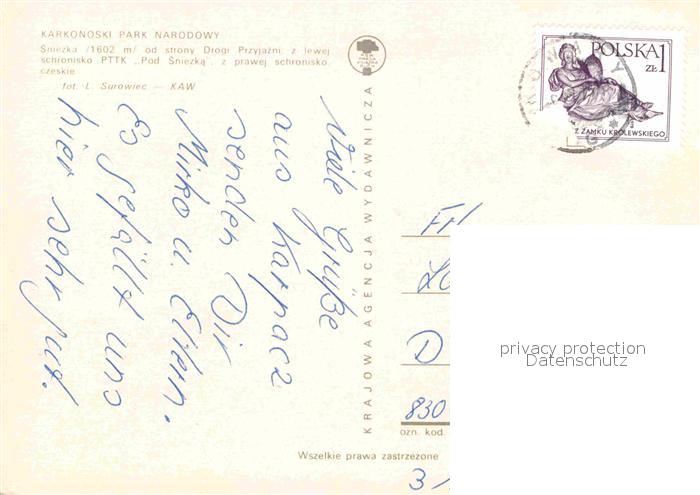 KARKONOSKI PARK NARODOWY
Śnieżka /1602 m/ od strony Drogi Przyjaźni, z lewej
schronisko PTTK „Pod Śnieżką", z prawej schronisko
czeskie
fot. L. Surowiec — KAW
KRAJOWA AGENCJA WYDAWNICZA
POLSKA 1
ZŁ
Z ZAMKU KRÓLEWSKIEGO
Viele Grüße
aus Karpacz
senden Dir
Mirko u. Eltern.
Es gefällt uns
hier sehr gut!
Frl
D
830
ozn. kod.
privacy protection
Datenschutz
Wszelkie prawa zastrzeżone
3